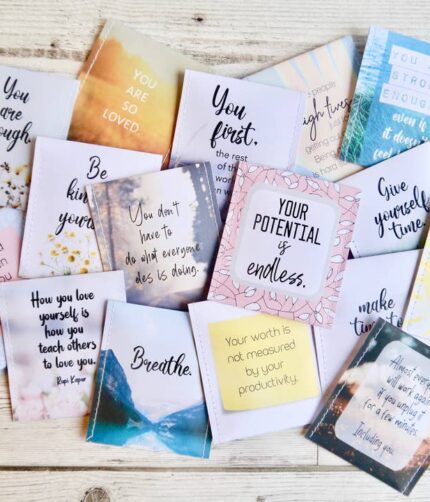 YOU
ARE
SO
LOVED.
You
are
You
first,
the rest
of the
people
high vibes
YOU
STRO
ENOUG
even i
it does
feel
Be
kin
your
You don't
have to
do what everyone
eles is doing.
YOUR
POTENTIAL
is
endless.
Give
yourself
time.
How you love
yourself is
how you
teach others
to love you.
Rupi Kapur
Breathe.
Your worth is
not measured
by your
productivity.
make
time to
Almost every
will work again
if you unplug it
for a few minutes.
Including you.